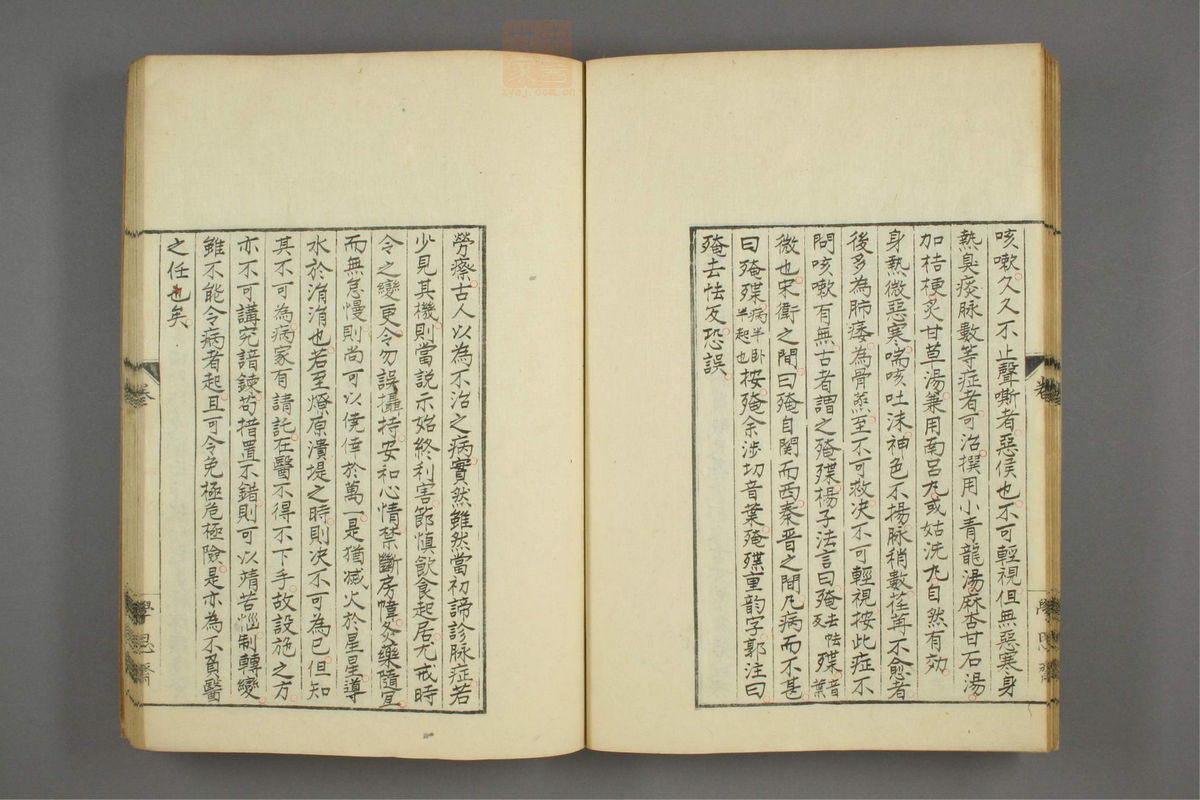 咳嗽久久不止聲嘶者惡候也不可輕視但無惡寒身
熱臭痰脉數等症者可治撰用小青龍湯麻杏甘石湯
加桔梗炙甘草湯兼用南呂丸或姑洗丸自然有効
身熱微惡寒喘咳吐沫神色不揚脉稍數荏苒不愈者
後多為肺痿為骨蒸至不可救决不可輕視按此症不
問咳嗽有無古者謂之殗殜楊子法言曰殗去怯反殜音葉
微也宋衛之間曰殗自関而西秦晋之間凡病而不甚
曰殗殜病半卧半起也按殗余涉切音葉殗殜重韵字郭注曰
殗去怯反恐誤
勞瘵古人以為不治之病實然雖然當初諦診脉症若
少見其機則當説示始終利害節慎飲食起居尤戒時
令之變更令勿誤攝持安和心情禁斷房幃灸藥隨宜
而無怠慢則尚可以僥倖於萬一是猶滅火於星星導
水於涓涓也若至燎原潰堤之時則决不可為已但知
其不可為病家有請託在醫不得不下手故設施之方
亦不可講究諳鍊苟措置不錯則可以靖苦惱制轉變
雖不能令病者起且可令免極危極險是亦為不負醫
之任也矣
卷
學思齋